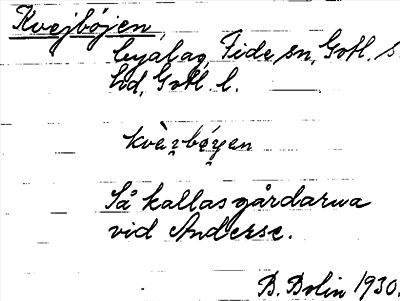 Kvejbøjen,
byalag, Fide sn, Gotl. s.
hd, Gotl. l.
kvèi̯bǿi̯en
Så kallas gårdarna
vid Anderse.
B. Bolin 1930.